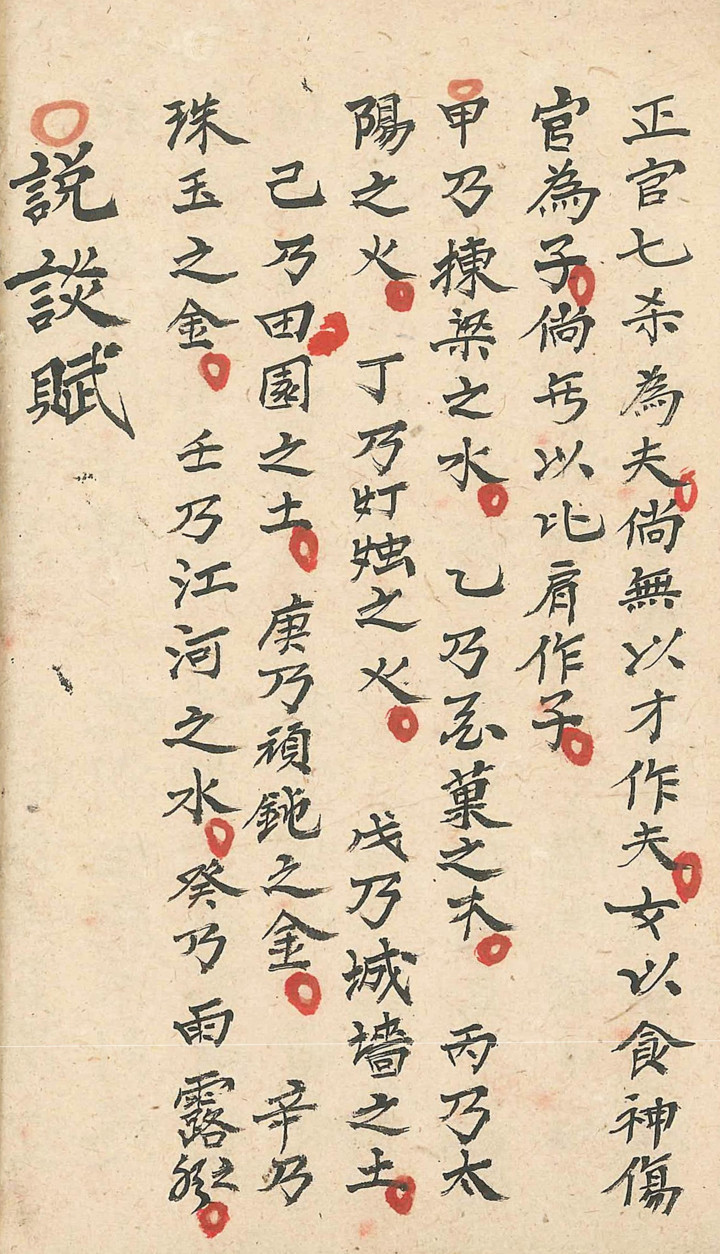 正官七杀為夫倘無以才作夫女以食神傷
官為子倘以比肩作子
甲乃棟梁之水 乙乃花菓之木 丙乃太
陽之火 丁乃灯烛之火 戊乃城墻之土
己乃田園之土 庚乃頑鈍之金 辛乃
珠玉之金 壬乃江河之水 癸乃雨露之水
説談賦